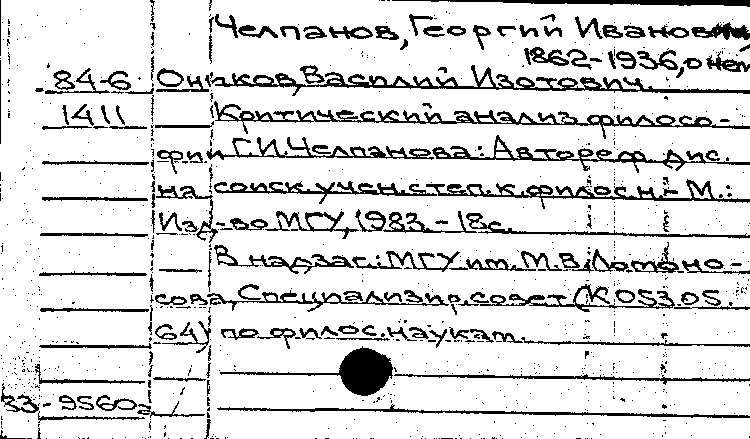 Челпанов, Георгий Иванович
1862-1936, о нем
84-6 Оников, Василий Изотович.
1411 Критический анализ филосо-
фии Г.И.Челпанова: Автореф. дис.
на соиск. учен. степ. к. филос. н. - М.:
Изд-во МГУ, 1983. - 18с.
В надзаг.: МГУ им. М.В.Ломоно-
сова, Специализир. совет (К 053.05.
64) по филос. наукам.
83-9560